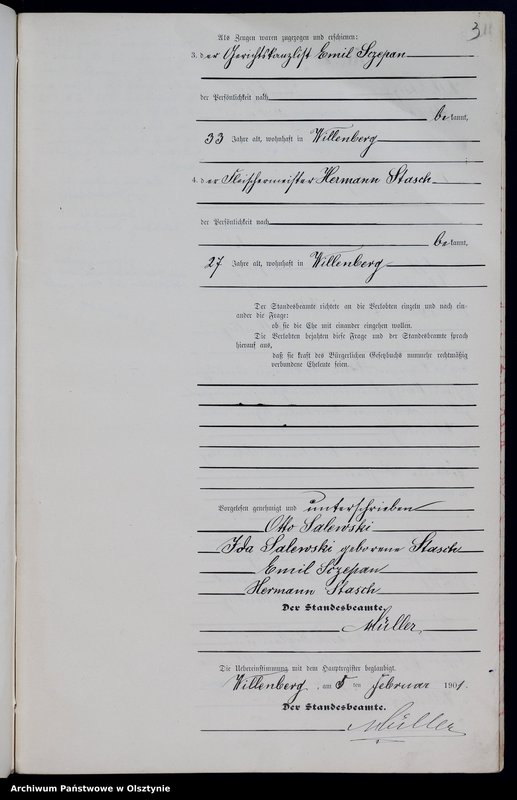 3
Als Zeugen waren zugezogen und erschienen:
3. der Gerichtskanzlist Emil Sczepan
der Persönlichkeit nach
bekannt,
33 Jahre alt, wohnhaft in Willenberg
4. der Fleischermeister Hermann Stasch
der Persönlichkeit nach
bekannt,
27 Jahre alt, wohnhaft in Willenberg
Der Standesbeamte richtete an die Verlobten einzeln und nach ein-
ander die Frage:
ob sie die Ehe mit einander eingehen wollen.
Die Verlobten bejahten diese Frage und der Standesbeamte sprach
hierauf aus,
daß sie kraft des Bürgerlichen Gesetzbuchs nunmehr rechtmäßig
verbundene Eheleute seien.
Vorgelesen genehmigt und unterschrieben
Otto Salewski
Ida Salewski geborene Stasch
Emil Sczepan
Hermann Stasch
Der Standesbeamte.
Müller.
Die Uebereinstimmung mit dem Hauptregister beglaubigt.
Willenberg, am 5 ten Februar 1901.
Der Standesbeamte.
Müller
Archiwum Państwowe w Olsztynie